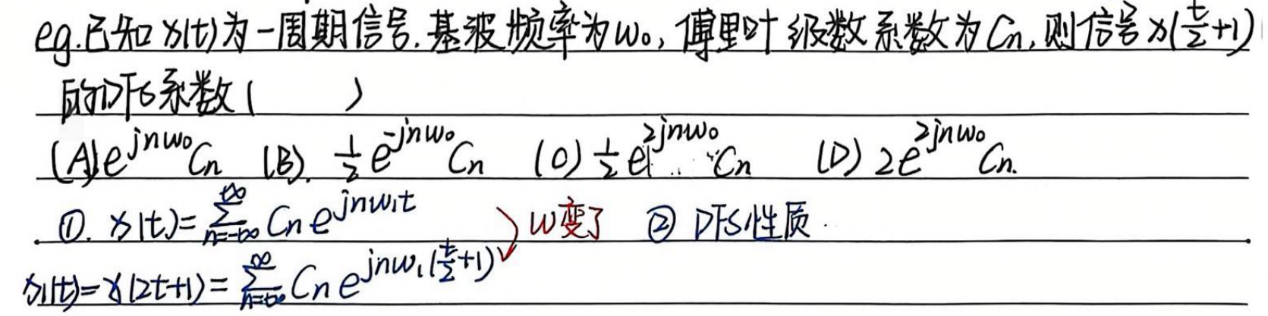 eg.已知x(t)为一周期信号.基波频率为w₀,傅里叶级数系数为Cn,则信号x(t/2+1)
的DFS系数( )
(A) e^{jnw₀}Cn (B). 1/2 e^{-jnw₀}Cn (C) 1/2 e^{2jnw₀}Cn (D) 2e^{2jnw₀}Cn.
①. x(t)=∑_{n=-∞}^{+∞} Cn e^{jnw₁t} w变了 ② DFS性质.
x₁(t)=x(2t+1)=∑_{n=-∞}^{∞} Cn e^{jnw₁(t/2+1)}